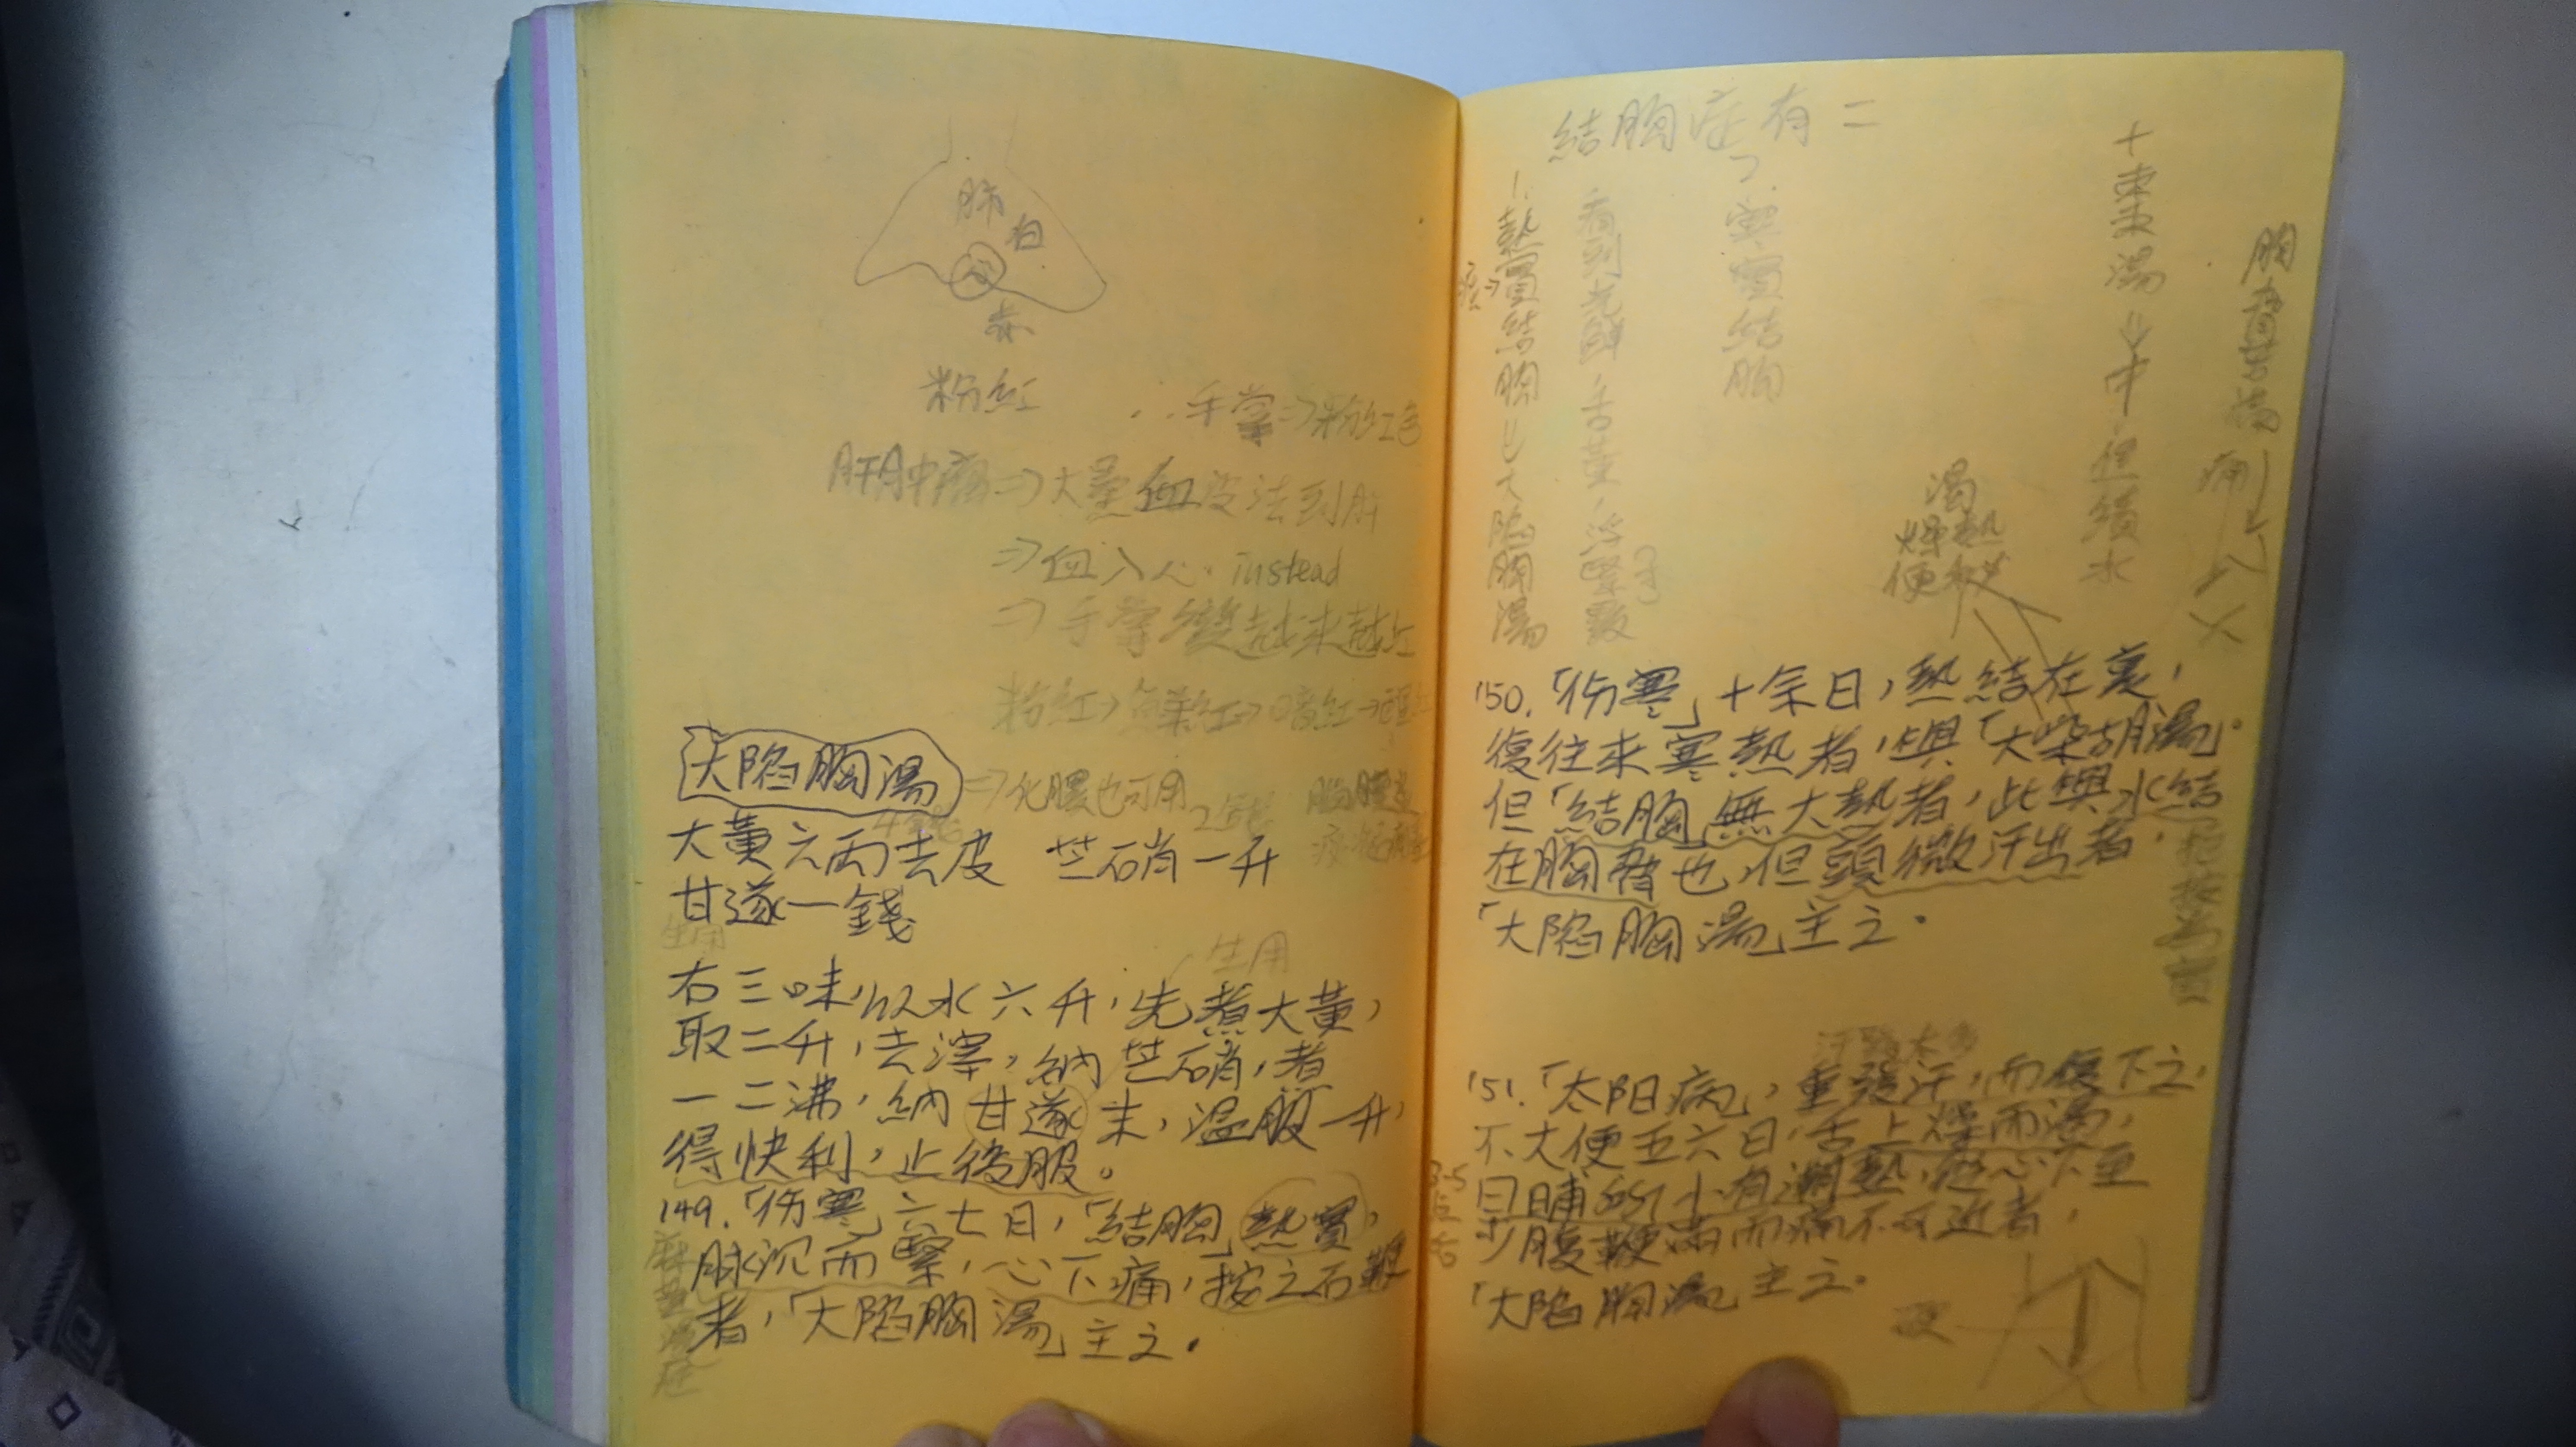 肺
白
心
赤
粉紅
∴手掌⇒粉紅色
肝腫瘤⇒大量血沒法到肝
⇒血入心. instead
⇒手掌變越來越紅
粉紅→鮮紅→暗紅→
大陷胸湯⇒化膿也可用
大黃六兩去皮 芒硝一升
甘遂一錢
生用
生用
右三味,以水六升,先煮大黃,
取二升,去滓,納芒硝,煮
一二沸,納甘遂末,温服一升,
得快利,止後服。
149.「伤寒」六七日,「結胸」熱實,
脉沉而緊,心下痛,按之石鞕
者,「大陷胸湯」主之.
結胸症有二
1.熱實結胸⇒大陷胸湯
痰→
2.寒實結胸
十棗湯⇒中,但積水
渴
煩熱
便秘
痛
150.「伤寒」十余日,熱結在裏,
復往來寒熱者,與「大柴胡湯」.
但「結胸」無大熱者,此與水結
在胸脅也,但頭微汗出者,
「大陷胸湯」主之.
151.「太阳病」,重發汗,而復下之,
不大便五六日,舌上燥而渴,
日晡所小有潮熱,從心下至
少腹鞕滿而痛不可近者,
「大陷胸湯」主之.
硬